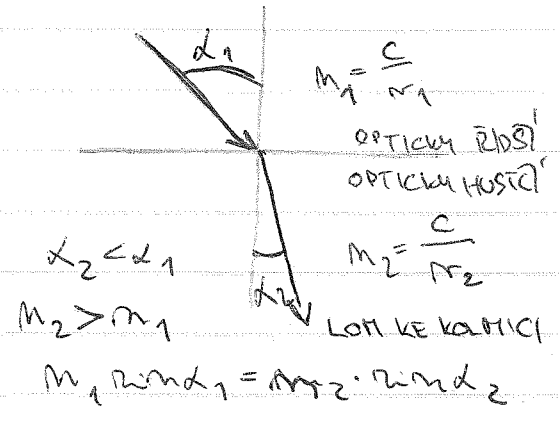 α₁
n₁ = c/v₁
OPTICKY ŘIDŠÍ
OPTICKY HUSTČÍ
α₂ < α₁
n₂ = c/v₂
α₂
n₂ > n₁
LOM KE KOLMICI
n₁ sin α₁ = n₂ · sin α₂